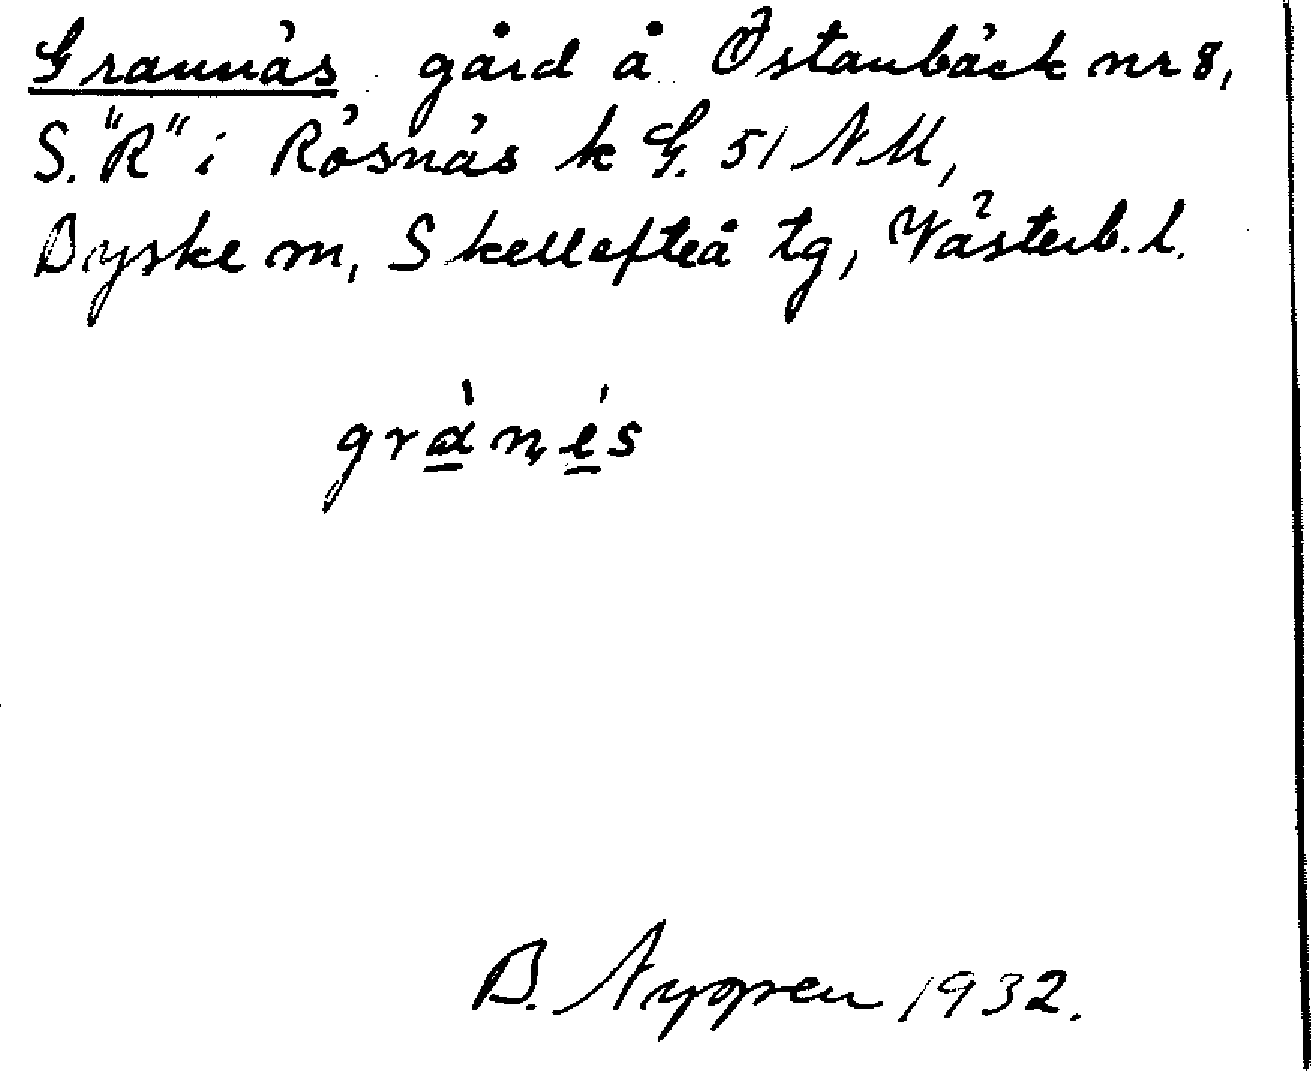 Grannäs gård å Östanbäck nr 8,
S. "R" i Rösnäs k G. 51 NM,
Byske sn, Skellefteå tg, Västerb. l.
grànés
B. Nygren 1932.